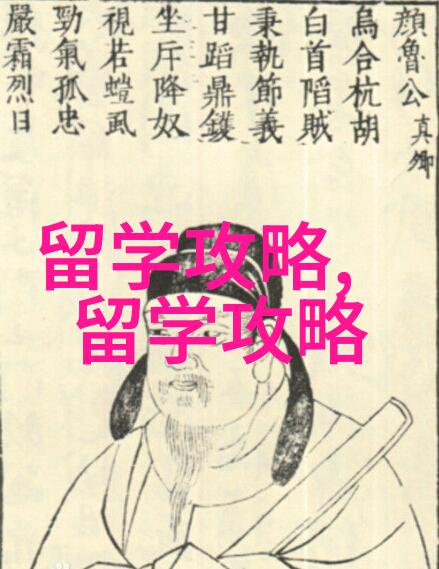 顔魯公真卿
烏合杭胡
白首陷賊
秉執節義
甘蹈鼎鑊
坐斥降奴
視若螘虱
勁氣孤忠
嚴霜烈日
留学攻略,
留学攻略